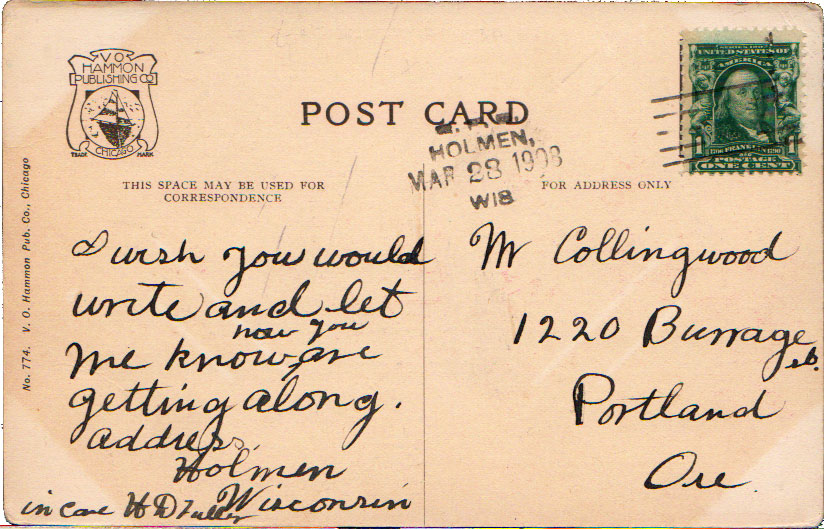 V O
HAMMON
PUBLISHING CO
TRADE CHICAGO MARK
POST CARD
SERIES 1902
UNITED STATES OF
AMERICA
1706 FRANKLIN 1790
POSTAGE
ONE CENT
HOLMEN,
MAR 28 1908
WIS
THIS SPACE MAY BE USED FOR
CORRESPONDENCE
FOR ADDRESS ONLY
No. 774. V. O. Hammon Pub. Co., Chicago
I wish you would
write and let
how you
me know are
getting along.
address
Holmen
Wisconsin
in care H D Fuller
Mr Collingwood
1220 Burrage
st.
Portland
Ore.